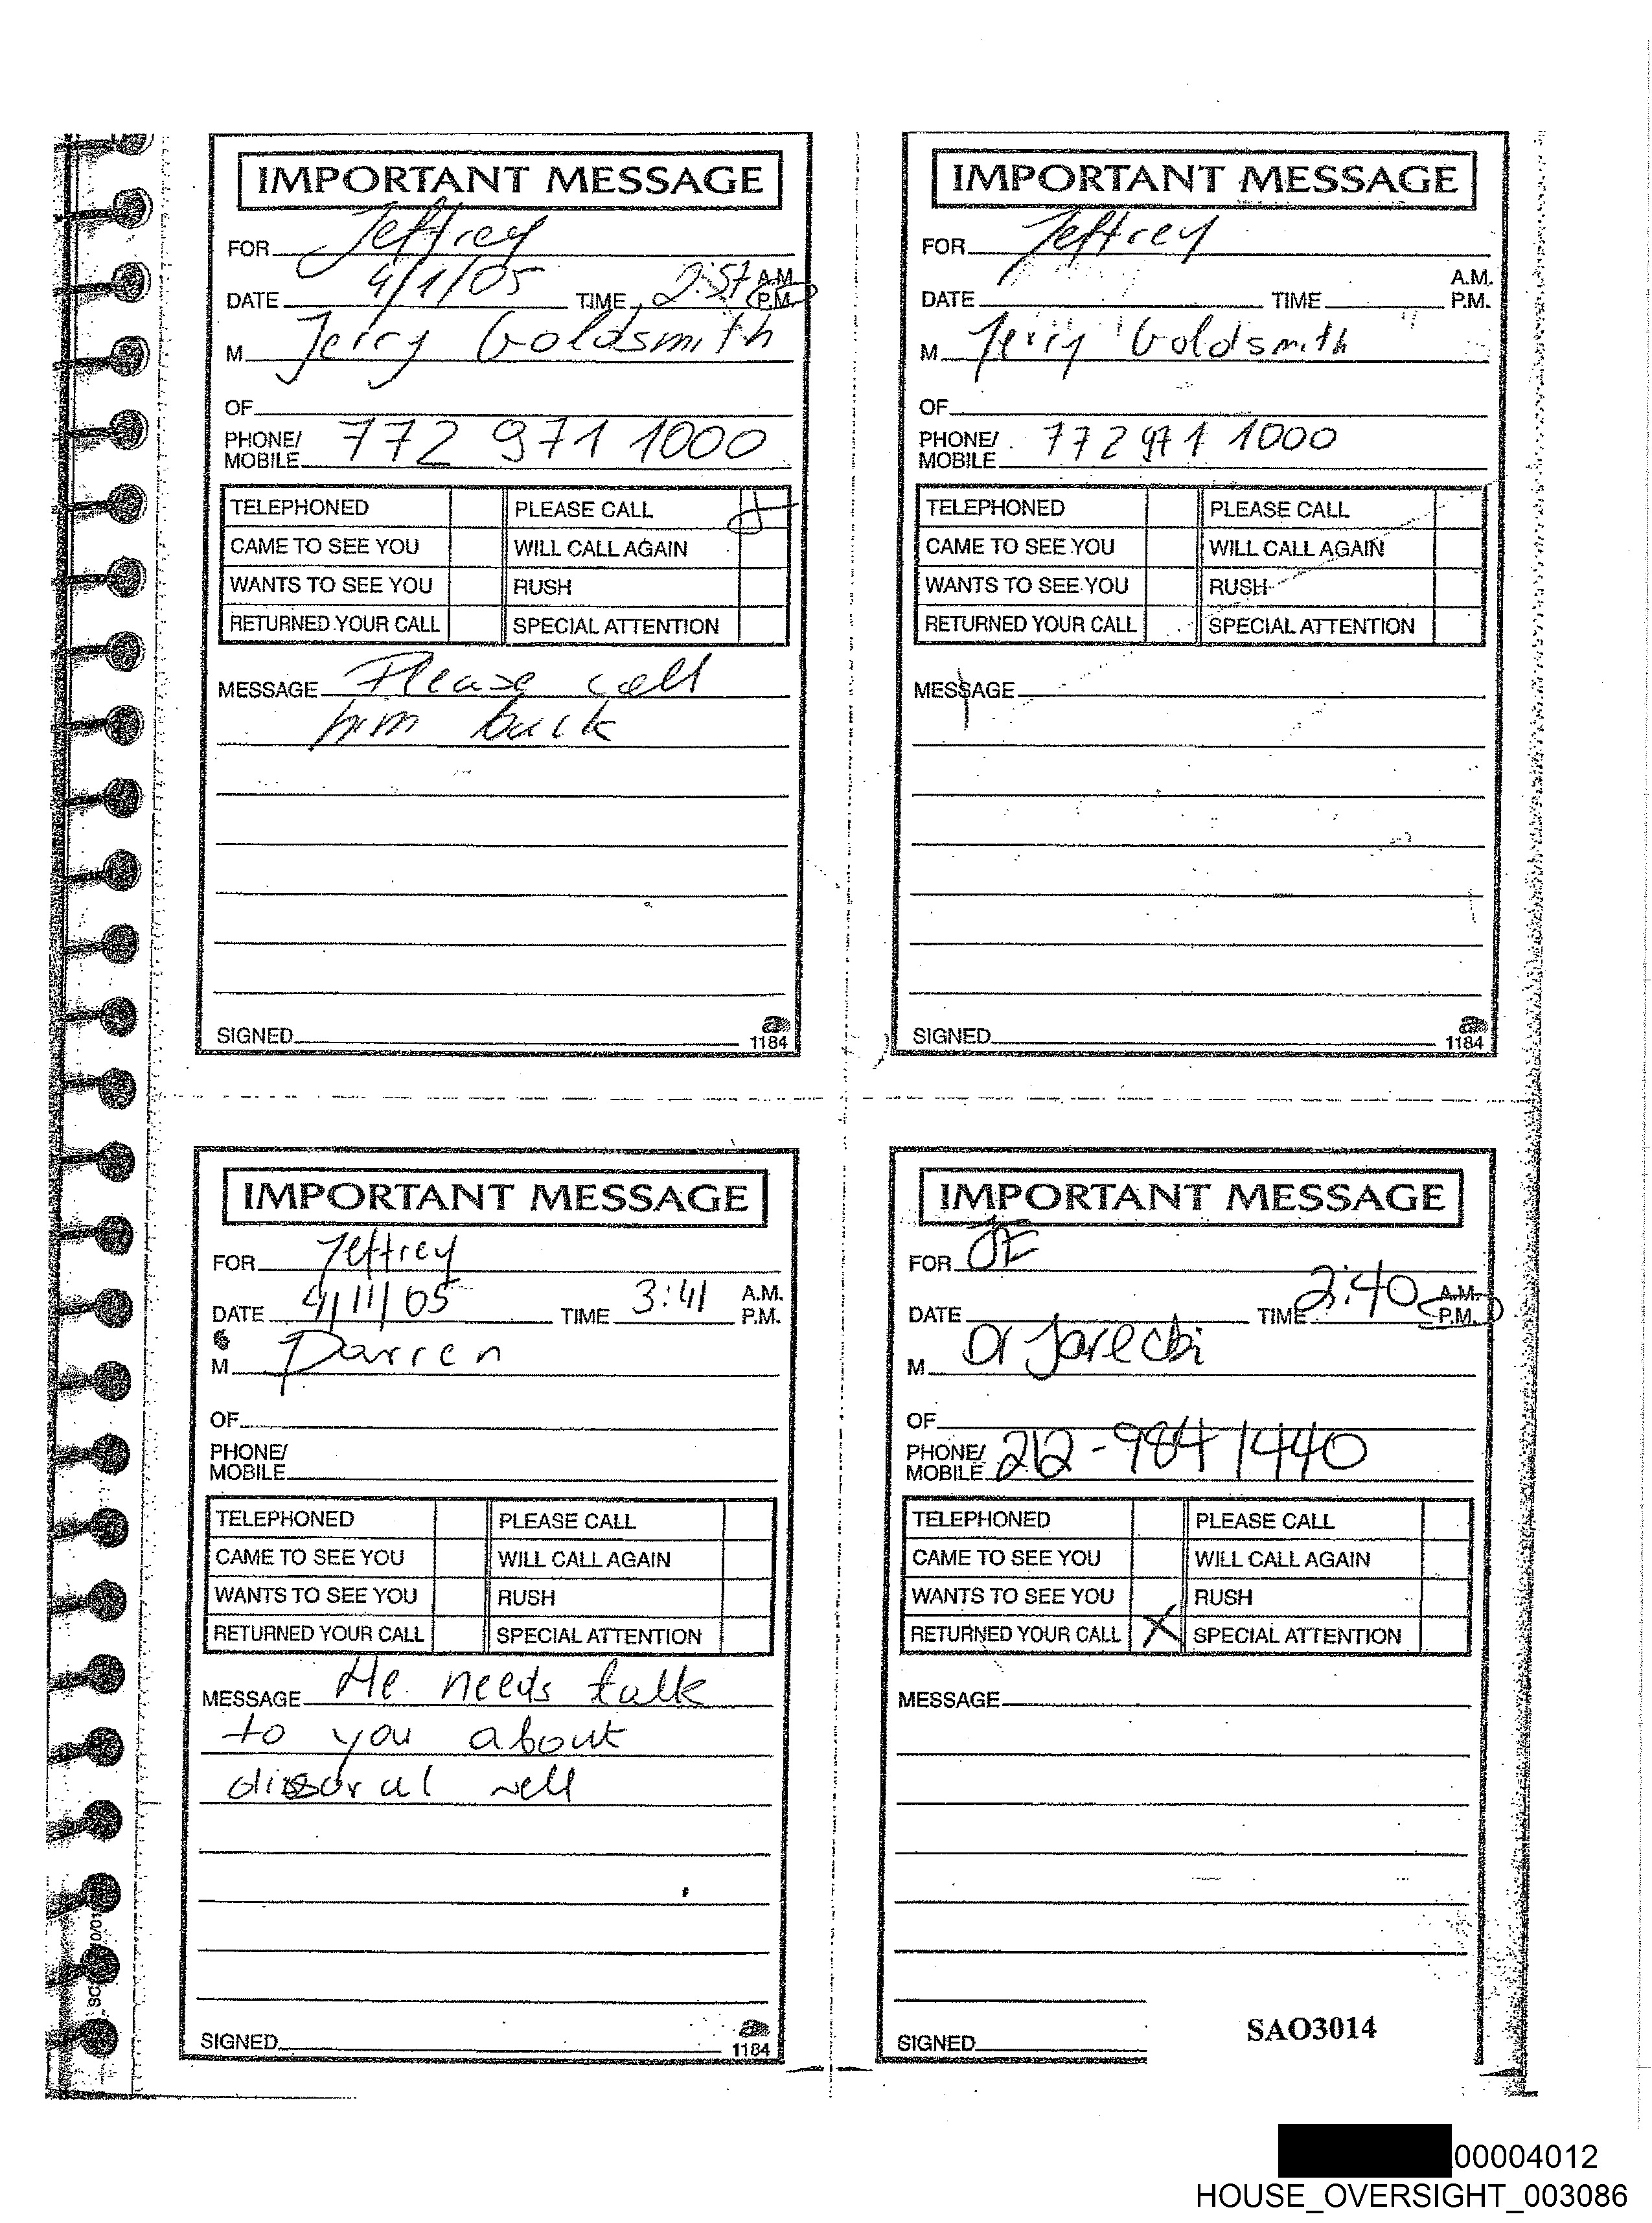 IMPORTANT MESSAGE
FOR Jeffrey
DATE 4/1/05 TIME 2:57 A.M. P.M.
M Jerry Goldsmith
OF
PHONE/ MOBILE 772 971 1000
TELEPHONED PLEASE CALL
CAME TO SEE YOU WILL CALL AGAIN
WANTS TO SEE YOU RUSH
RETURNED YOUR CALL SPECIAL ATTENTION
MESSAGE Please call
him back
SIGNED
1184
IMPORTANT MESSAGE
FOR Jeffrey
DATE TIME A.M. P.M.
M Jerry Goldsmith
OF
PHONE/ MOBILE 772 971 1000
TELEPHONED PLEASE CALL
CAME TO SEE YOU WILL CALL AGAIN
WANTS TO SEE YOU RUSH
RETURNED YOUR CALL SPECIAL ATTENTION
MESSAGE
SIGNED
1184
IMPORTANT MESSAGE
FOR Jeffrey
DATE 4/11/05 TIME 3:41 A.M. P.M.
M Darren
OF
PHONE/ MOBILE
TELEPHONED PLEASE CALL
CAME TO SEE YOU WILL CALL AGAIN
WANTS TO SEE YOU RUSH
RETURNED YOUR CALL SPECIAL ATTENTION
MESSAGE He needs talk
to you about
well
SIGNED
1184
IMPORTANT MESSAGE
FOR JE
DATE TIME 2:40 A.M. P.M.
M Dr Jarecki
OF
PHONE/ MOBILE 212-984 1440
TELEPHONED PLEASE CALL
CAME TO SEE YOU WILL CALL AGAIN
WANTS TO SEE YOU RUSH
RETURNED YOUR CALL X SPECIAL ATTENTION
MESSAGE
SIGNED
SAO3014
00004012
HOUSE_OVERSIGHT_003086